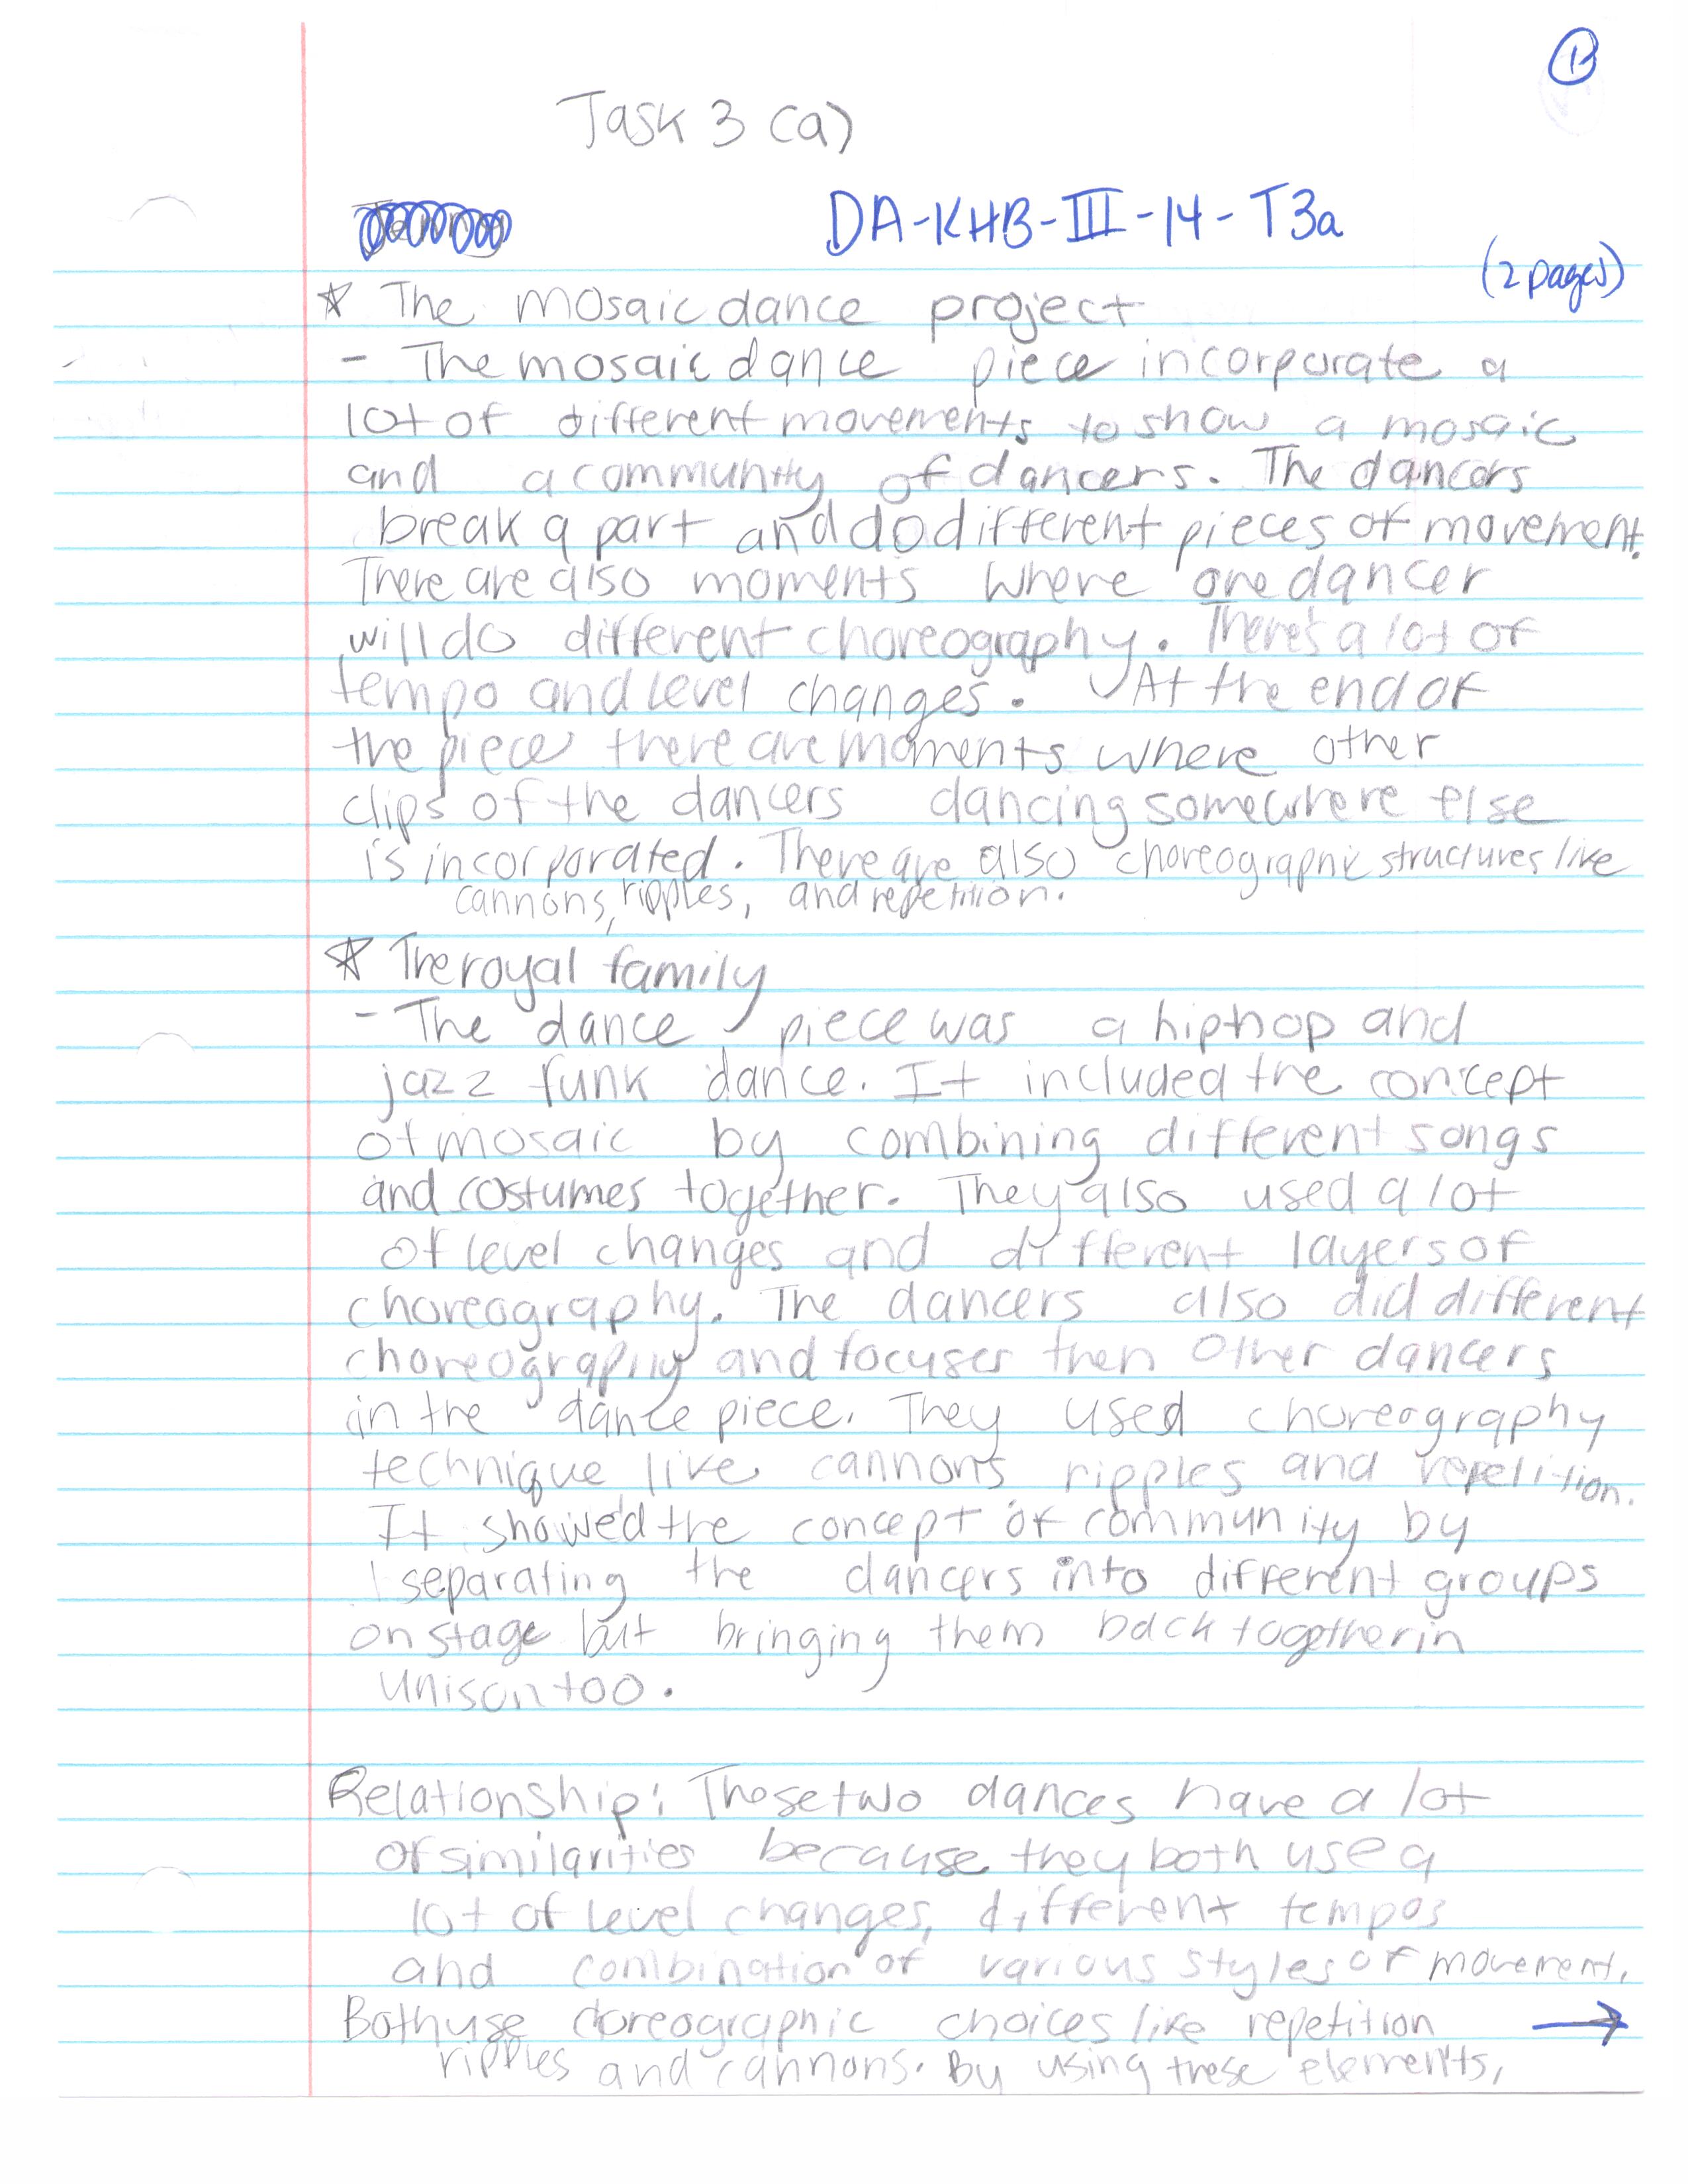 B
Task 3 (a)
DA-KHB-III-14-T3a
(2 pages)
☆ The mosaic dance project
- The mosaic dance piece incorporate a
lot of different movements to show a mosaic
and a community of dancers. The dancers
break a part and do different pieces of movement.
There are also moments where one dancer
will do different choreography. There's a lot of
tempo and level changes. At the end of
the piece there are moments where other
clips of the dancers dancing somewhere else
is incorporated. There are also choreographic structures like
cannons, ripples, and repetition.
☆ The royal family
- The dance piece was a hiphop and
jazz funk dance. It included the concept
of mosaic by combining different songs
and costumes together. They also used a lot
of level changes and different layers of
choreography. The dancers also did different
choreography and focuses then other dancers
in the dance piece. They used choreography
technique like cannons ripples and repetition.
It showed the concept of community by
separating the dancers into different groups
on stage but bringing them back together in
unison too.
Relationship: These two dances have a lot
of similarities because they both use a
lot of level changes, different tempos
and combination of various styles of movement.
Both use choreographic choices like repetition →
ripples and cannons. By using these elements,